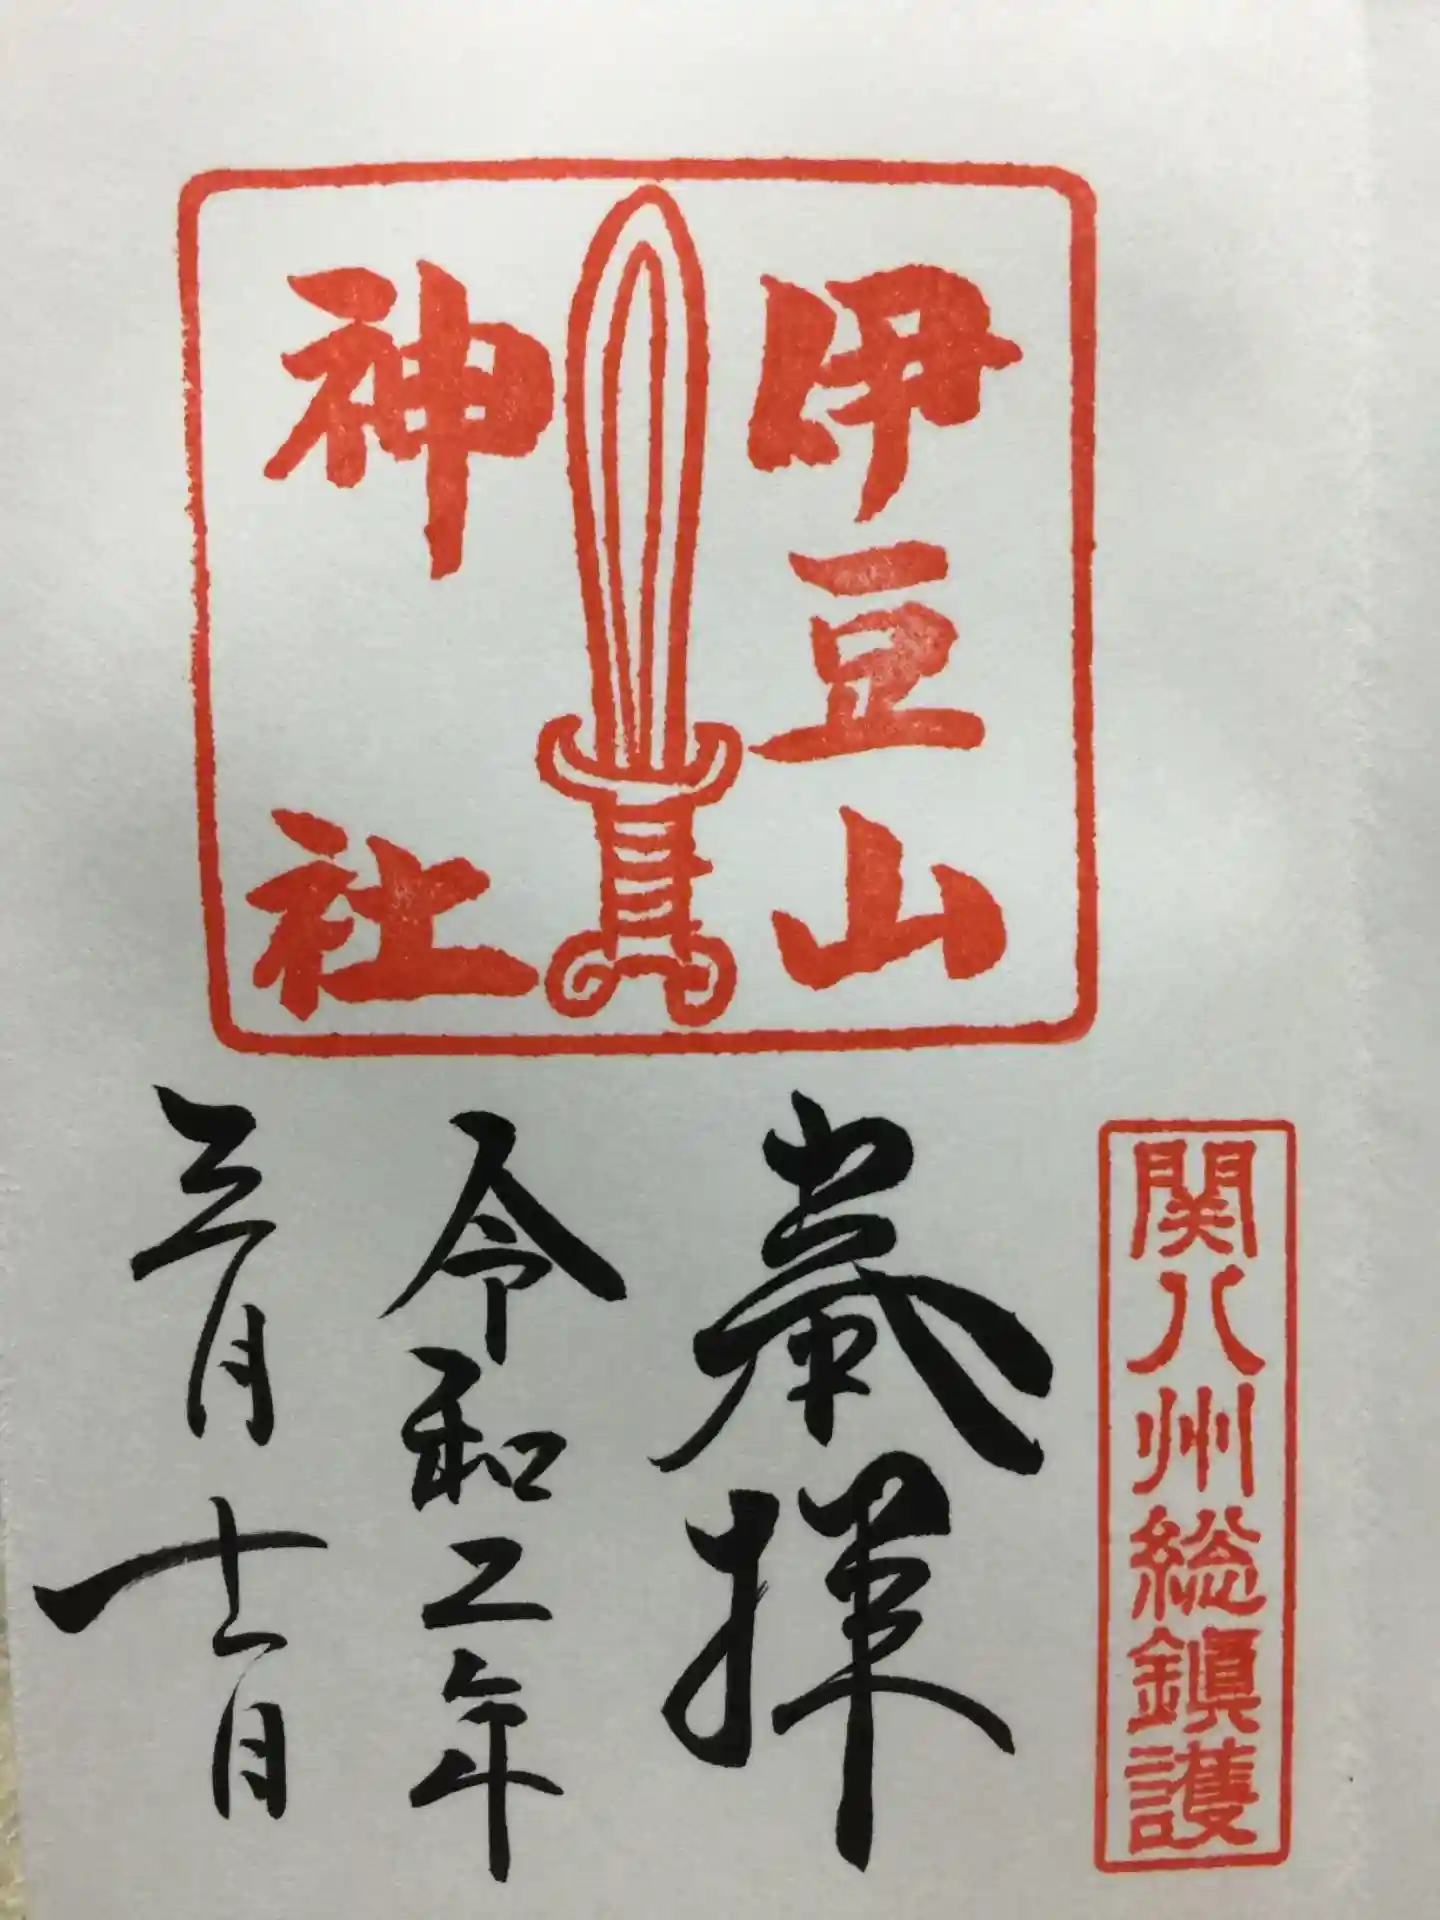 関八州総鎭護
伊豆山
神社
奉拝
令和二年
三月十一日